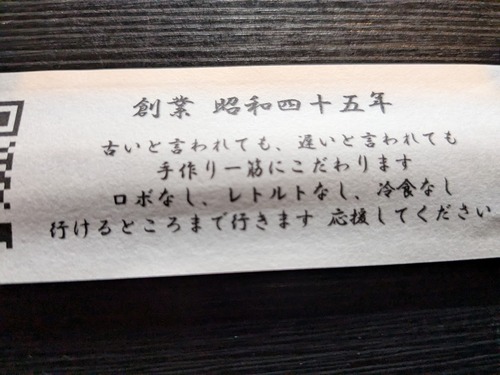 創業 昭和四十五年
古いと言われても、遅いと言われても
手作り一筋にこだわります
ロボなし、レトルトなし、冷食なし
行けるところまで行きます 応援してください